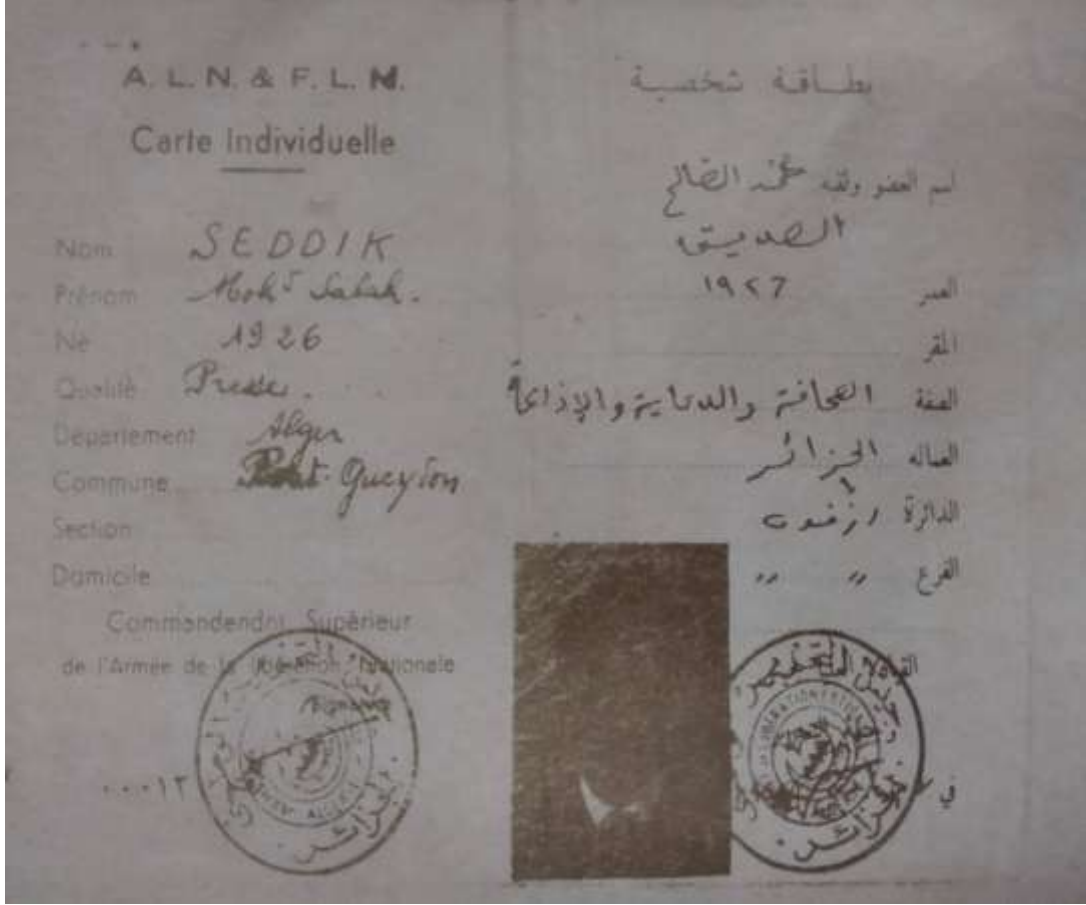 A. L. N. & F. L. N.
Carte Individuelle
Nom SEDDIK
Prénom Mohd Salah.
Né 1926
Qualité Presse.
Département Alger
Commune Port-Gueydon
Section
Domicile
Commandendnt Supérieur
de l'Armée de la libération Nationale
٠٠٠١٢
بطاقة شخصية
اسم العضو ولقبه محمد الصالح
الصديق
العمر ١٩٢٧
المقر
الصفة الصحافة والدعاية والإذاعة
العماله الجزائر
الدائرة ازفون
الفرع " "
في
الجزائر